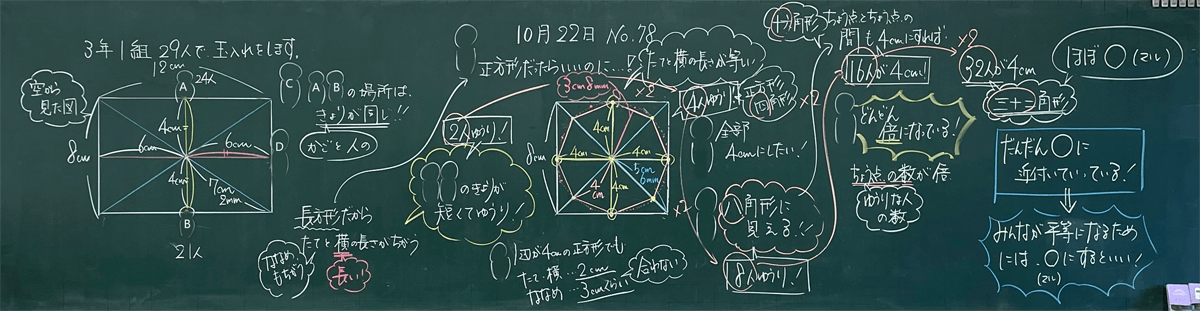 3年1組 29人で玉入れをします。
12cm
24人
空から
見た図
A
8cm
4cm
6cm
6cm
4cm
7cm
2mm
B
21人
C
D
A Bの場所は、
きょりが同じ!!
かごと人の
長方形だから
たてと横の長さがちがう
ななめ
もちがう
長い!
10月22日 No.78
正方形だったらいいのに…!
たてと横の長さが等しい
2人ゆうり!
のきょりが
短くてゆうり!
3cm8mm
8cm
4cm
4cm
4cm
4cm
4cm
5cm
6mm
1辺が4cmの正方形でも
たて、横…2cm
ななめ…3cmくらい
合わない
×2
4人ゆうり!
正方形
四角形
全部
4cmにしたい!
×2
八角形に
見える!!
8人ゆうり!
×2
十六角形
ちょう点とちょう点の
間も4cmにすれば…
16人が4cm!
×2
32人が4cm
三十二角形
どんどん
倍になっている!
ちょう点の数が倍
ゆうりな人
の数
ほぼ〇(マル)
だんだん〇に
近付いていっている!
みんなが平等になるため
には、〇にするといい!
(マル)